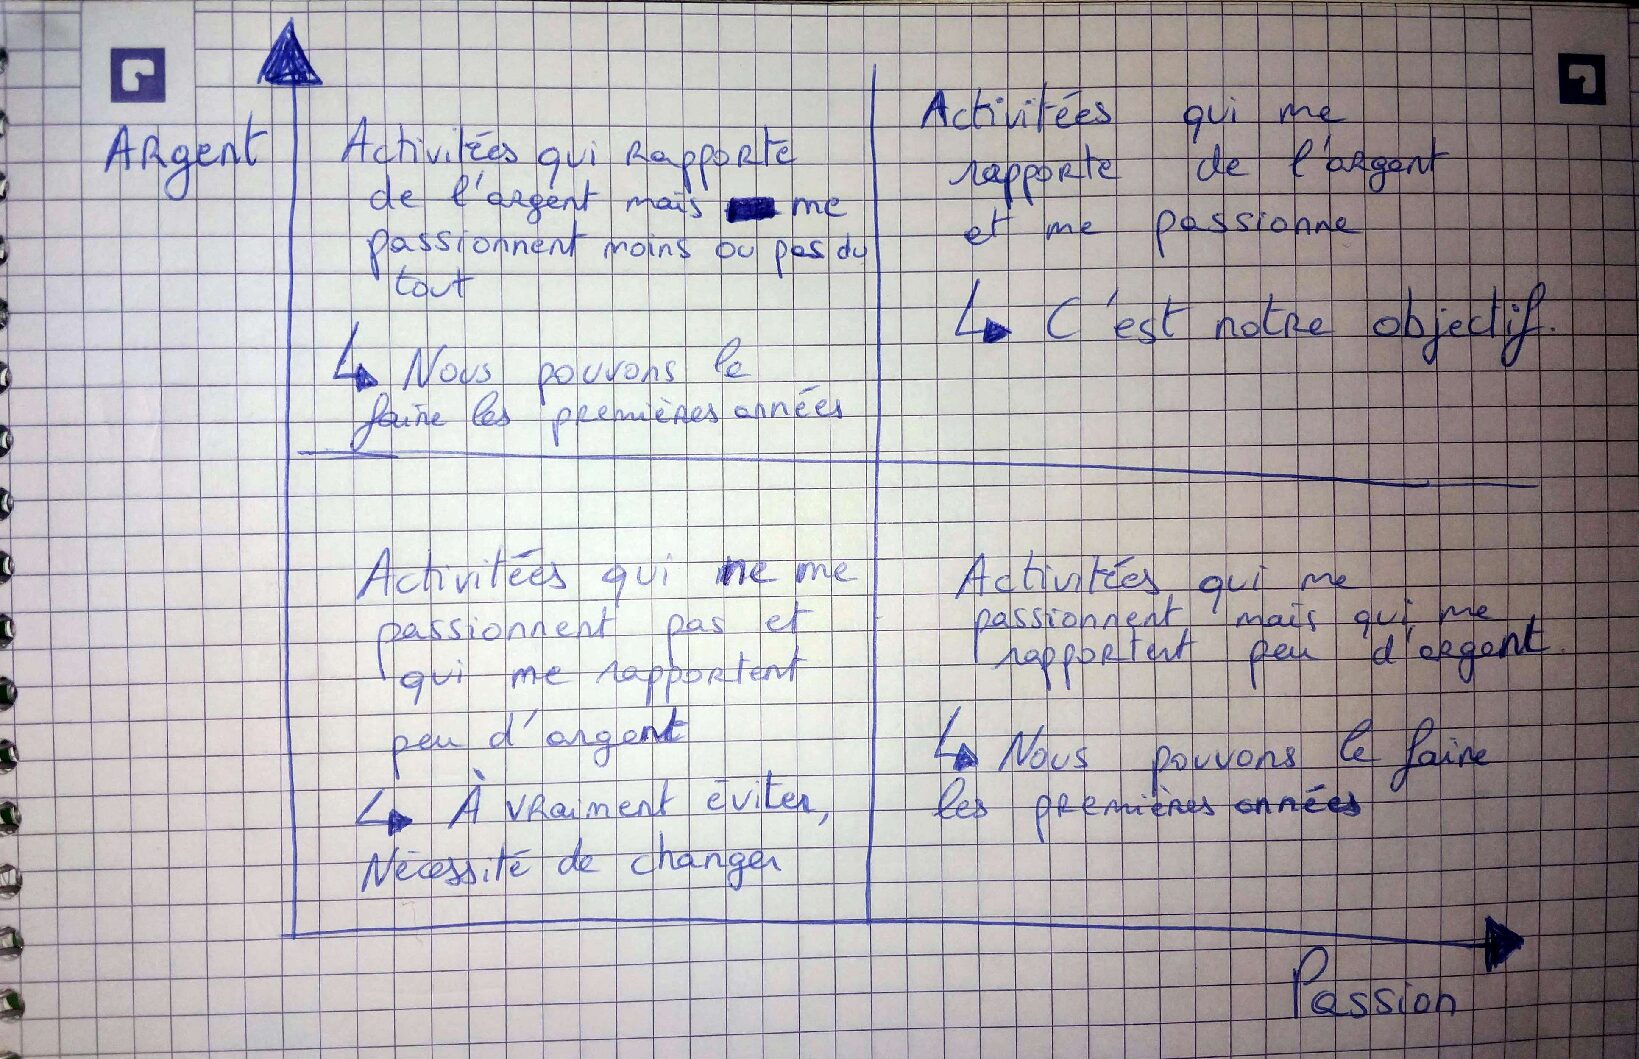 Argent
Activitées qui rapporte
de l'argent mais me
passionnent moins ou pas du
tout
Nous pouvons le
faire les premières années
Activitées qui me
rapporte de l'argent
et me passionne
C'est notre objectif.
Activitées qui ne me
passionnent pas et
qui me rapportent
peu d'argent
À vraiment éviter,
Nécessité de changer
Activitées qui me
passionnent mais qui me
rapportent peu d'argent.
Nous pouvons le faire
les premières années
Passion